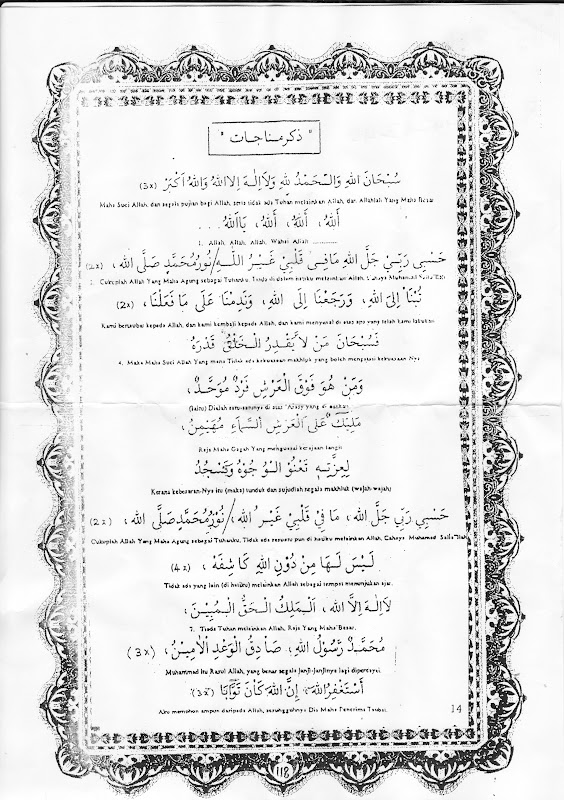 " ذكر مناجات "
سُبْحَانَ اللهِ وَالْحَمْدُ لِلهِ وَلَا إِلٰهَ إِلَّا اللهُ وَاللهُ أَكْبَرُ (3x)
Maha Suci Allah, dan segala pujian bagi Allah, serta tidak ada Tuhan melainkan Allah, dan Allahlah Yang Maha Besar
اَللهُ، اَللهُ، اَللهُ، يَا اَللهُ ...
1. Allah, Allah, Allah, Wahai Allah ............
حَسْبِي رَبِّي جَلَّ اللهِ مَا فِى قَلْبِي غَيْرُ اللهِ/نُورُ مُحَمَّدٍ صَلَّى اللهِ، (2x)
Cukuplah Allah Yang Maha Agung sebagai Tuhanku, Tiada didalam hatiku melainkan Allah, Cahaya Muhamad
تُبْنَا إِلَى اللهِ، وَرَجَعْنَا إِلَى اللهِ، وَنَدِمْنَا عَلَى مَا فَعَلْنَا، (2x)
Kami bertaubat kepada Allah, dan kami kembali kepada Allah, dan kami menyesal di atas apa yang telah kami lakukan
فَسُبْحَانَ مَنْ لَا يَقْدِرُ الْخَلْقُ قَدْرَهُ
4. Maka Maha Suci Allah Yang mana Tidak ada kekuasaan makhluk yang boleh mengatasi kekuasaan Nya
وَمَنْ هُوَ فَوْقَ الْعَرْشِ فَرْدٌ مُوَحَّدٌ،
(Iaitu) Dialah satu-satunya di atas 'Arasy yang di
مَلِيْكٌ عَلَى الْعَرْشِ السَّمَاءِ مُهَيْمِنُ،
Raja Maha Gagah Yang menguasai kerajaan langit
لِعِزَّتِهِ تَعْنُوْ الْوُجُوْهُ وَتَسْجُدُ
Kerana kebesaran-Nya itu (maka) tunduk dan sujudlah segala makhluk (wajah-wajah)
حَسْبِي رَبِّي جَلَّ اللهِ، مَا فِي قَلْبِي غَيْرُ اللهِ/نُوْرُ مُحَمَّدٍ صَلَّى اللهِ، (2x)
Cukuplah Allah Yang Maha Agung sebagai Tuhanku, Tidak ada sesuatu pun di hatiku melainkan Allah, Cahaya Muhamad
لَيْسَ لَهَا مِنْ دُوْنِ اللهِ كَاشِفَهْ (4x)
Tidak ada yang lain (di hatiku) melainkan Allah sebagai tempat menunjukan ajar.
لَا إِلٰهَ إِلَّا اللهِ، اَلْمَلِكُ الْحَقُّ الْمُبِيْنُ،
7. Tiada Tuhan melainkan Allah, Raja Yang Maha Besar,
مُحَمَّدٌ رَّسُوْلُ اللهِ، صَادِقُ الْوَعْدِ الْأَمِيْنُ، (3x)
Muhammad itu Rasul Allah, yang benar segala Janji-Janjinya lagi dipercayai.
أَسْتَغْفِرُ اللهَ، إِنَّ اللهَ كَانَ تَوَّابًا (3x)
Aku memohon ampun daripada Allah, sesungguhnya Dia Maha Penerima Taubat.
14
118